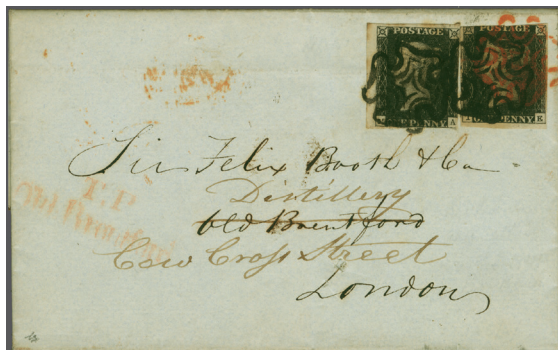 POSTAGE POSTAGE
PENNY A PENNY K
Sir Felix Booth & Co
Distillery
Old Brentford
Cow Cross Street
London
T.P
Old Brentford